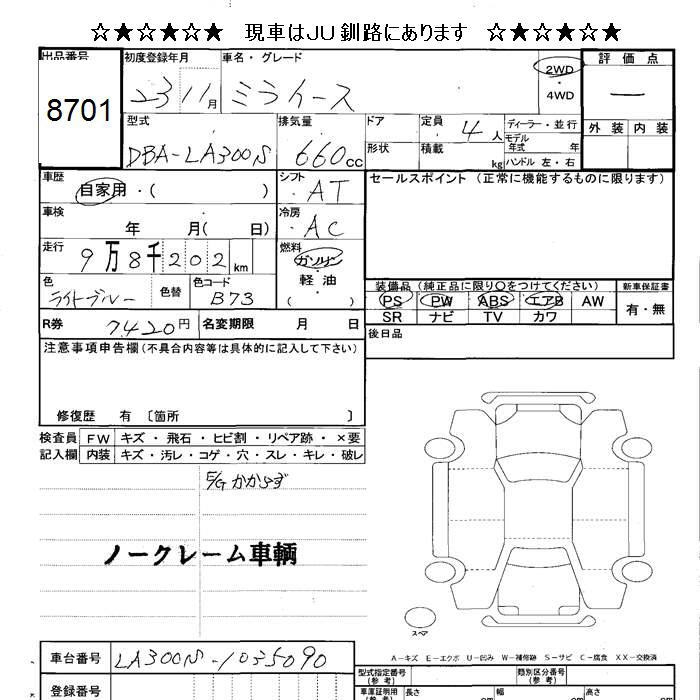 ☆★☆★☆★ 現車はJU釧路にあります ☆★☆★☆★
出品番号 初度登録年月 車名・グレード 評価点
8701 23 11月 ミライース 2WD ・ 4WD —
型式 排気量 ドア 定員 4人 ディーラー・並行 外装 内装
DBA-LA300S 660cc 形状 積載 kg モデル年式 年
ハンドル 左・右
車歴 自家用・( ) シフト AT セールスポイント(正常に機能するものに限ります)
車検 年 月( 日) 冷房 AC
走行 9万8千202km 燃料 ガソリン
軽油
( )
色 ライトブルー 色替 色コード B73
装備品(純正品に限り〇をつけてください) 新車保証書
PS PW ABS エアB AW 有・無
SR ナビ TV カワ
R券 7420円 名変期限 月 日 後日品
注意事項申告欄(不具合内容等は具体的に記入して下さい)
修復歴 有 〔箇所 〕
検査員 FW キズ・飛石・ヒビ割・リペア跡・×要
記入欄 内装 キズ・汚レ・コゲ・穴・スレ・キレ・破レ
E/G かからず
ノークレーム車輌
スペア
A-キズ E-エクボ U-凹み W-補修跡 S-サビ C-腐食 XX-交換済
車台番号 LA300S-1035090
型式指定番号(参考) 類別区分番号(参考)
登録番号 車庫証明用(参考) 長さ cm 幅 cm 高さ cm